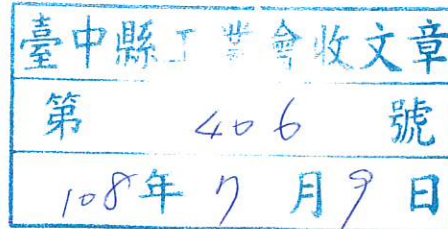 臺中縣工業會收文章
第 406 號
108年 7 月 9 日